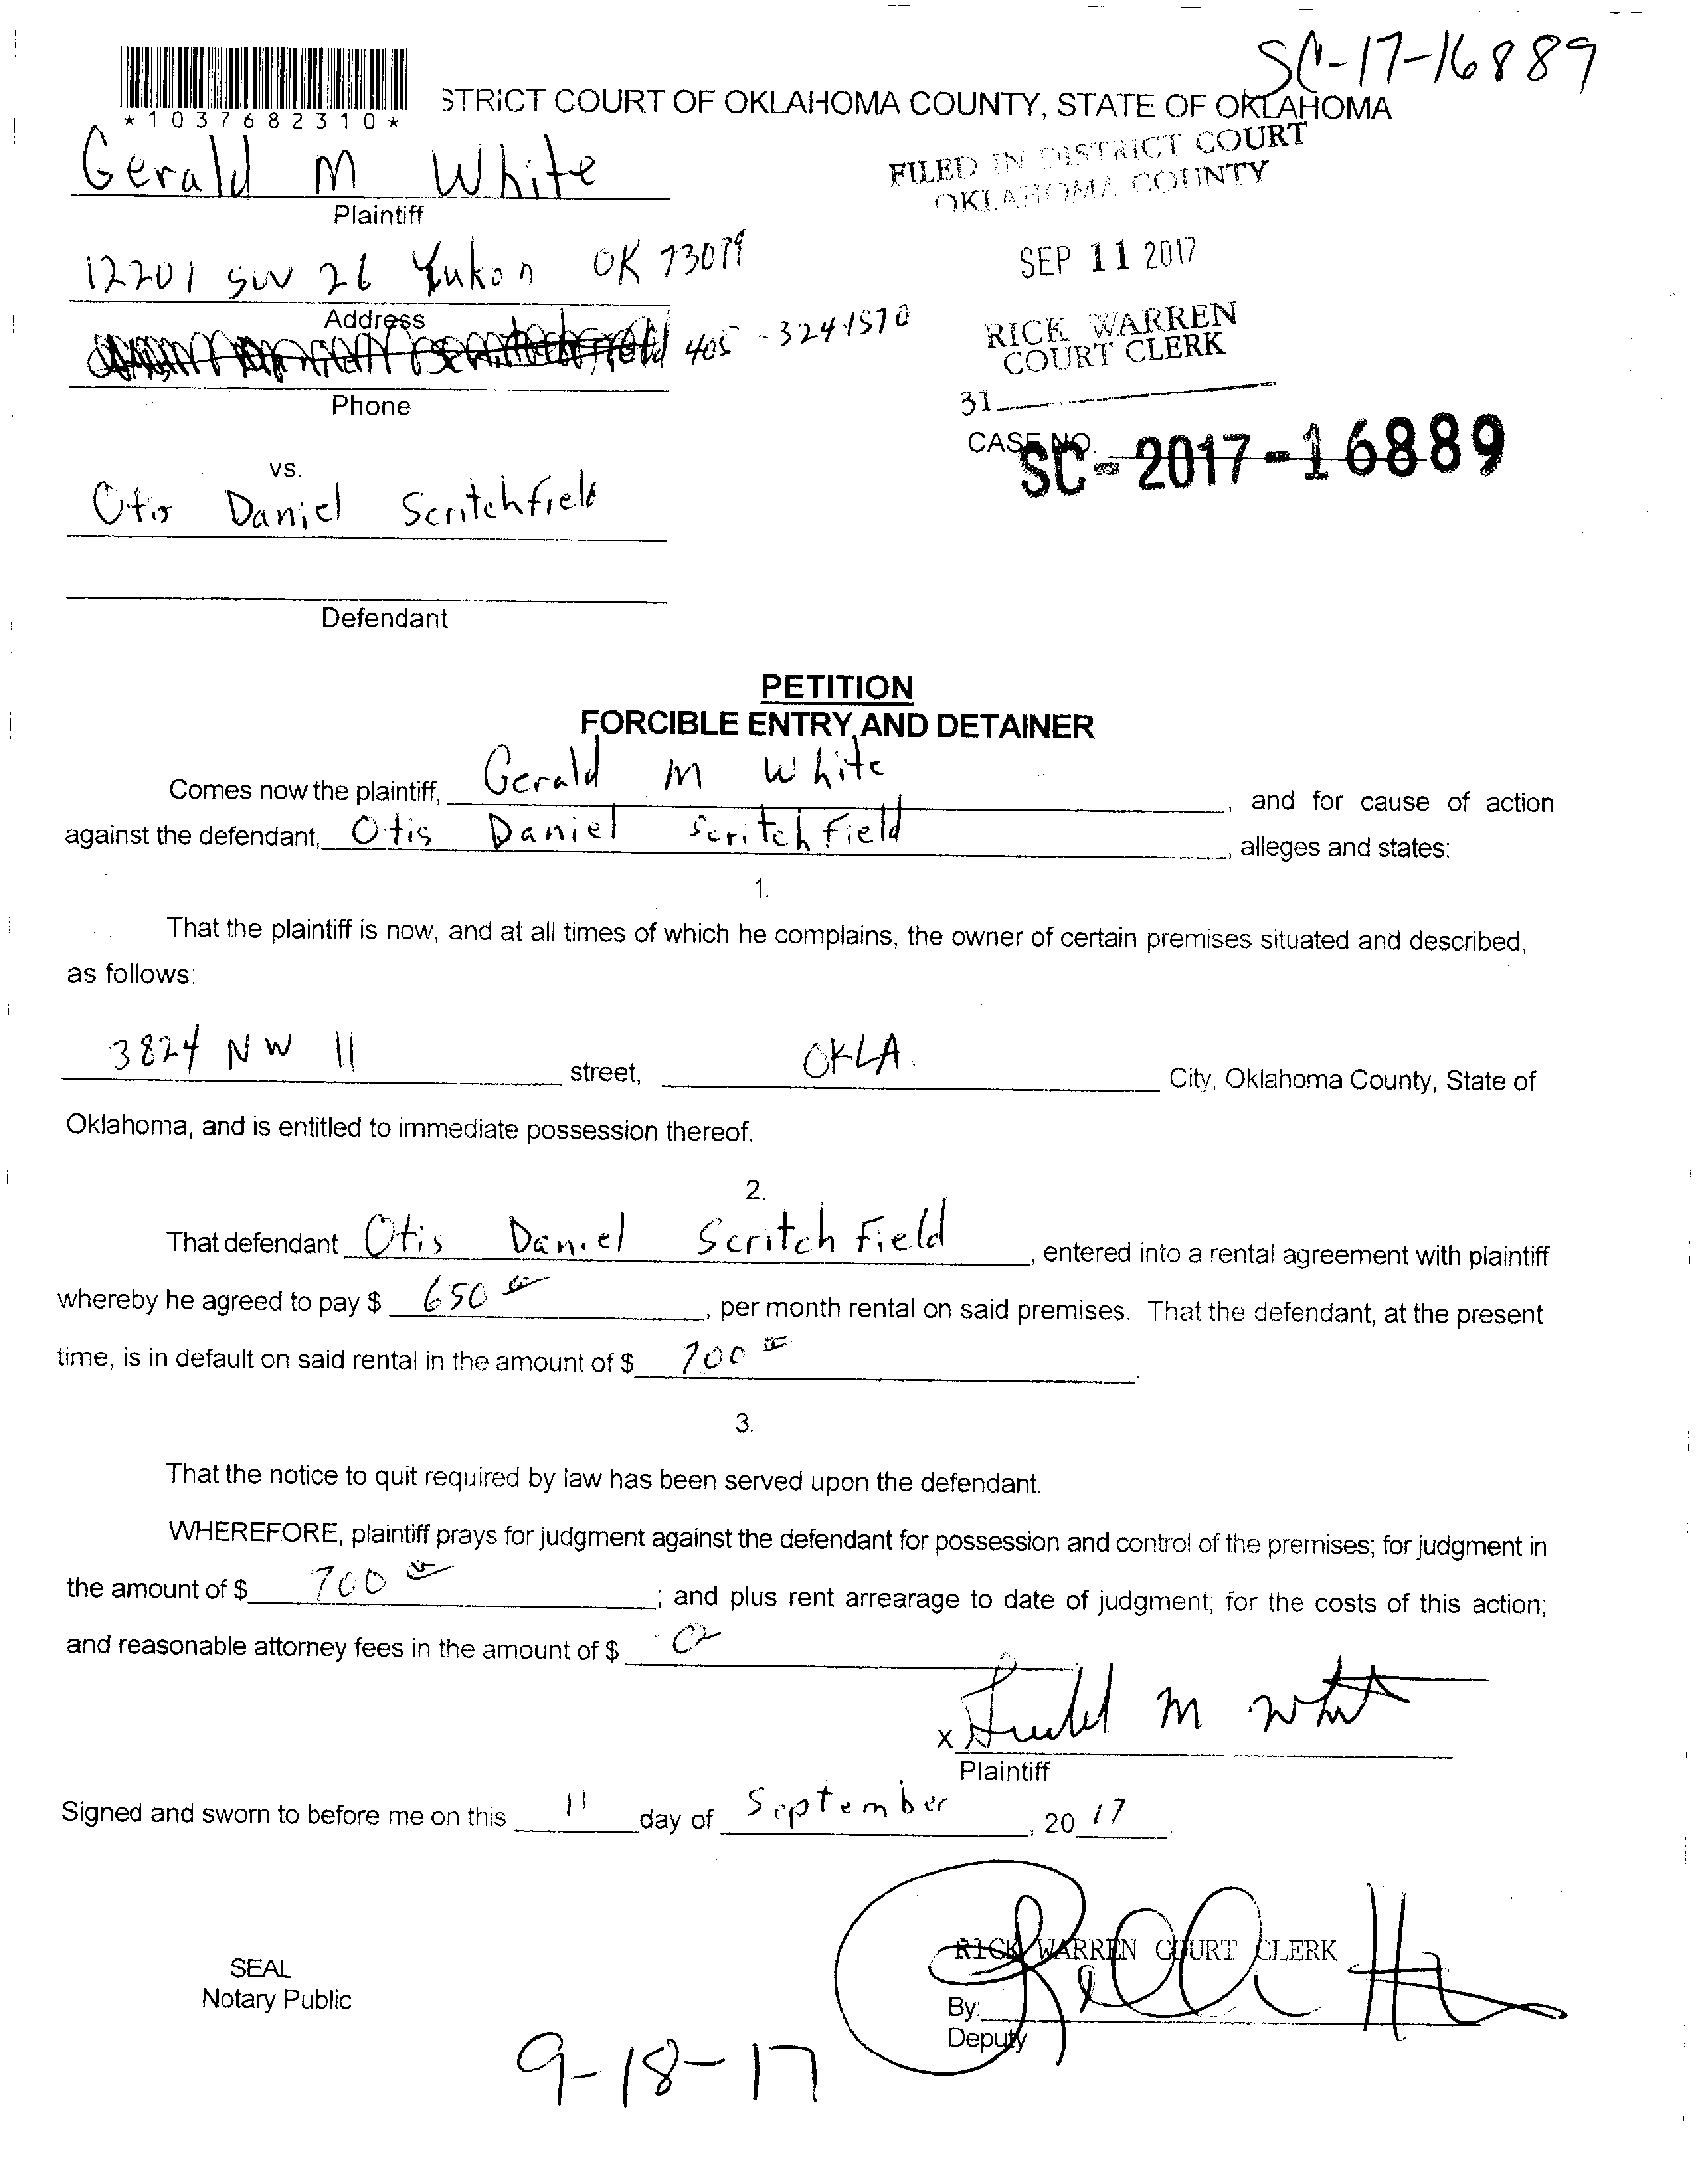 SC-17-16889
*1037682310*
STRICT COURT OF OKLAHOMA COUNTY, STATE OF OKLAHOMA
Gerald M White
Plaintiff
FILED IN DISTRICT COURT
OKLAHOMA COUNTY
12201 SW 26 Yukon OK 73099
Address
SEP 11 2017
405-324-1570
Phone
RICK WARREN
COURT CLERK
31
CASE NO.
SC-2017-16889
vs.
Otis Daniel Scritchfield
Defendant
PETITION
FORCIBLE ENTRY AND DETAINER
Comes now the plaintiff, Gerald M White, and for cause of action
against the defendant, Otis Daniel Scritchfield, alleges and states:
1.
That the plaintiff is now, and at all times of which he complains, the owner of certain premises situated and described,
as follows:
3824 NW 11 street, OKLA. City, Oklahoma County, State of
Oklahoma, and is entitled to immediate possession thereof.
2.
That defendant Otis Daniel Scritchfield, entered into a rental agreement with plaintiff
whereby he agreed to pay $ 650 00, per month rental on said premises. That the defendant, at the present
time, is in default on said rental in the amount of $ 700 00.
3.
That the notice to quit required by law has been served upon the defendant.
WHEREFORE, plaintiff prays for judgment against the defendant for possession and control of the premises; for judgment in
the amount of $ 700 00; and plus rent arrearage to date of judgment; for the costs of this action;
and reasonable attorney fees in the amount of $
x Gerald M White
Plaintiff
Signed and sworn to before me on this 11 day of September, 2017.
SEAL
Notary Public
RICK WARREN COURT CLERK
By:
Deputy
9-18-17